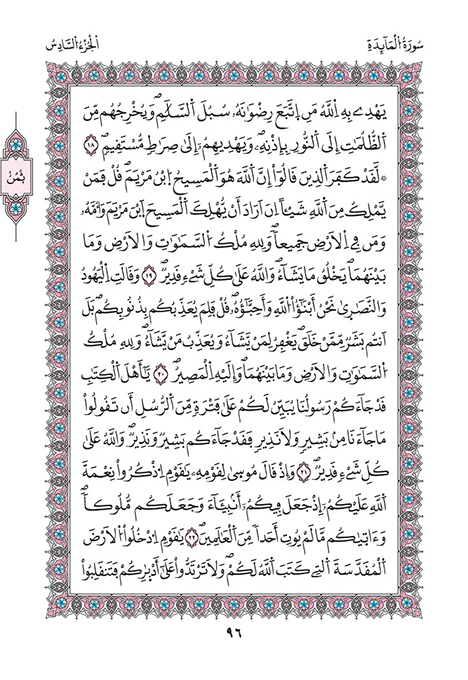 سُورَةُ الْمَآئِدَةِ
الجُزْءُ السَّادِسُ
ثُمُنُ
يَهْدِے بِهِ اِللَّهُ مَنِ اِتَّبَعَ رِضْوَٰنَهُۥ سُبُلَ اَلسَّلَٰمِۖ وَيُخْرِجُهُم مِّنَ
اَلظُّلُمَٰتِ إِلَى اَلنُّورِ بِإِذْنِهِۦۖ وَيَهْدِيهِمُۥٓ إِلَىٰ صِرَٰطٖ مُّسْتَقِيمٖۖ ١٨
۞ لَّقَدْ كَفَرَ اَلذِينَ قَالُوٓاْ إِنَّ اَللَّهَ هُوَ اَلْمَسِيحُ اُ۪بْنُ مَرْيَمَۖ قُلْ فَمَنْ
يَّمْلِكُ مِنَ اَللَّهِ شَيْـٔاً اِنَ اَرَادَ أَنْ يُّهْلِكَ اَلْمَسِيحَ اَ۪بْنَ مَرْيَمَ وَأُمَّهُۥ
وَمَن فِے اِلْأَرْضِ جَمِيعاٗۖ وَلِلهِ مُلْكُ اُ۬لسَّمَٰوَٰتِ وَالْأَرْضِ وَمَا
بَيْنَهُمَاۖ يَخْلُقُ مَا يَشَآءُۖ وَاللَّهُ عَلَىٰ كُلِّ شَےْءٖ قَدِيرٞۖ ١٩ وَقَالَتِ اِلْيَهُودُ
وَالنَّصَٰرَىٰ نَحْنُ أَبْنَٰٓؤُاْ اُللَّهِ وَأَحِبَّٰٓؤُهُۥۖ قُلْ فَلِمَ يُعَذِّبُكُم بِذُنُوبِكُمۖ بَلَ
اَنتُم بَشَرٞ مِّمَّنْ خَلَقَۖ يَغْفِرُ لِمَنْ يَّشَآءُ وَيُعَذِّبُ مَنْ يَّشَآءُۖ وَلِلهِ مُلْكُ
اُ۬لسَّمَٰوَٰتِ وَالْأَرْضِ وَمَا بَيْنَهُمَاۖ وَإِلَيْهِ اِلْمَصِيرُۖ ٢٠ يَٰٓأَهْلَ اَلْكِتَٰبِ
قَدْ جَآءَكُمْ رَسُولُنَا يُبَيِّنُ لَكُمْ عَلَىٰ فَتْرَةٖ مِّنَ اَلرُّسُلِ أَن تَقُولُواْ
مَا جَآءَنَا مِنۢ بَشِيرٖ وَلَا نَذِيرٖۖ فَقَدْ جَآءَكُم بَشِيرٞ وَنَذِيرٞۖ وَاللَّهُ عَلَىٰ
كُلِّ شَےْءٖ قَدِيرٞۖ ٢١ وَإِذْ قَالَ مُوسَىٰ لِقَوْمِهِۦ يَٰقَوْمِ اِ۟ذْكُرُواْ نِعْمَةَ
اَللَّهِ عَلَيْكُمُۥٓ إِذْ جَعَلَ فِيكُمُۥٓ أَنۢبِيَآءَ وَجَعَلَكُم مُّلُوكاٗۖ
وَءَاتَيٰكُم مَّا لَمْ يُوتِ أَحَداٗ مِّنَ اَلْعَٰلَمِينَۖ ٢٢ يَٰقَوْمِ اِ۟دْخُلُواْ اُلْأَرْضَ
اَلْمُقَدَّسَةَ اَلتِے كَتَبَ اَللَّهُ لَكُمْۖ وَلَا تَرْتَدُّواْ عَلَىٰٓ أَدْبَٰرِكُمْ فَتَنقَلِبُواْ
٩٦